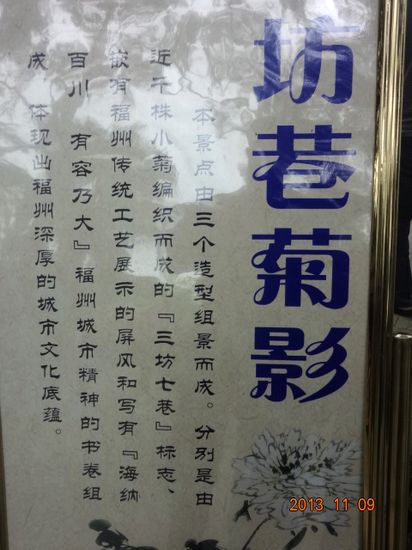 坊巷菊影
本景点由三个造型组景而成。分别是由
近千株小菊编织而成的『三坊七巷』标志、
嵌有福州传统工艺展示的屏风和写有『海纳
百川 有容乃大』福州城市精神的书卷组
成 体现出福州深厚的城市文化底蕴。
2013 11 09